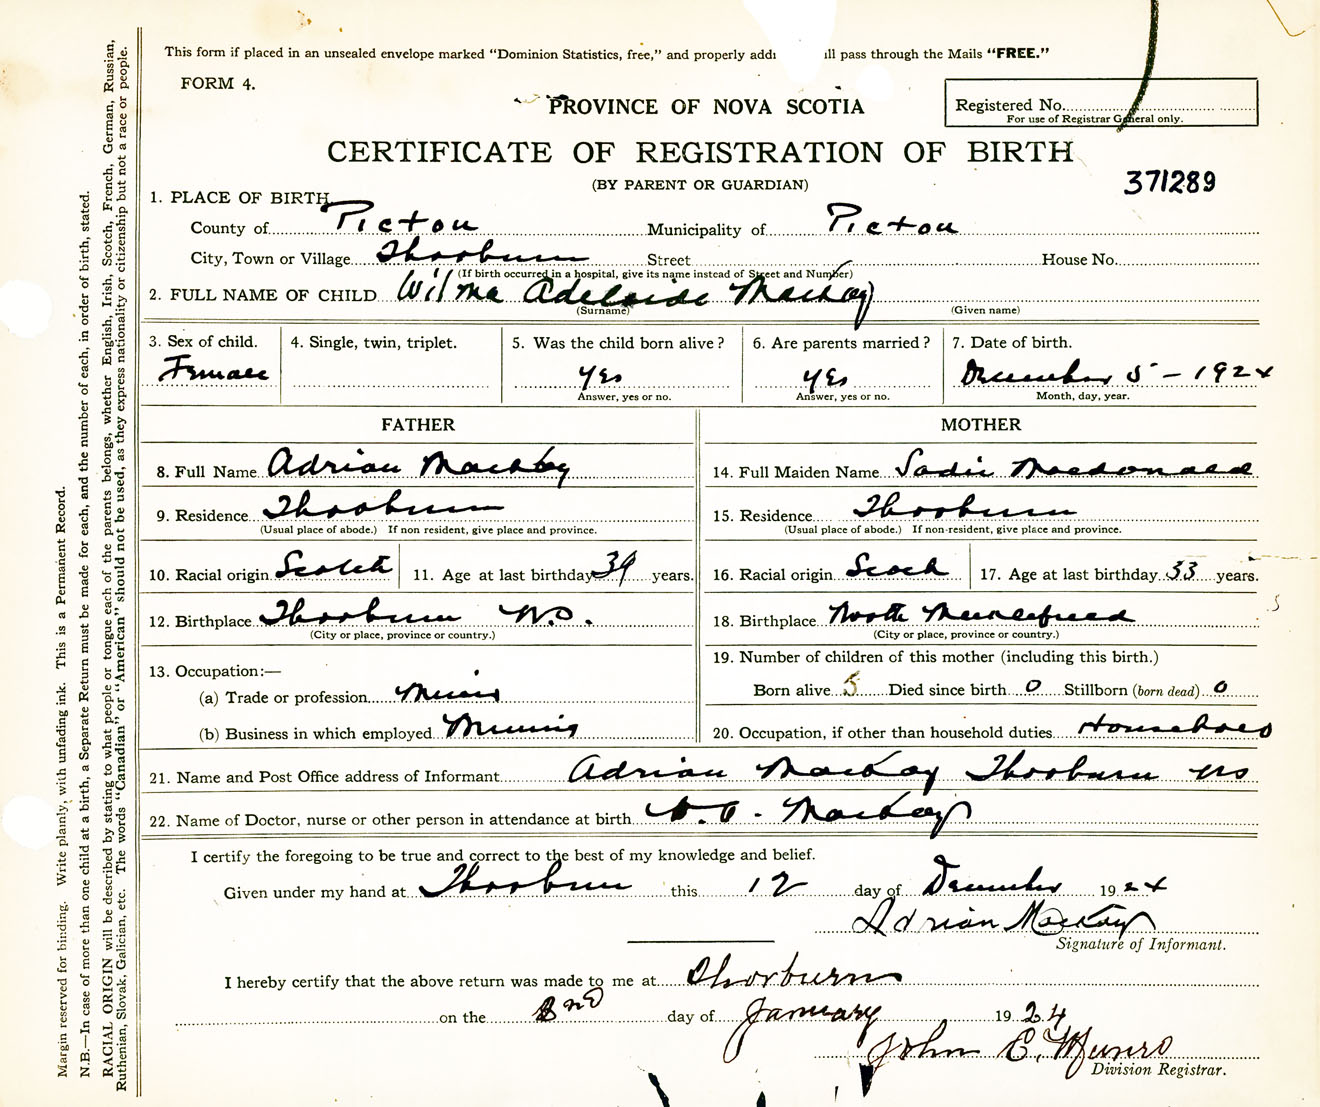 This form if placed in an unsealed envelope marked “Dominion Statistics, free,” and properly add ll pass through the Mails “FREE.”
FORM 4.
PROVINCE OF NOVA SCOTIA
Registered No.
For use of Registrar General only.
CERTIFICATE OF REGISTRATION OF BIRTH
(BY PARENT OR GUARDIAN)
371289
1. PLACE OF BIRTH
County of Pictou Municipality of Pictou
City, Town or Village Thorburn Street House No.
(If birth occurred in a hospital, give its name instead of Street and Number)
2. FULL NAME OF CHILD Wilma Adelaide MacKay
(Surname) (Given name)
3. Sex of child. 4. Single, twin, triplet. 5. Was the child born alive? 6. Are parents married? 7. Date of birth.
Female yes yes December 5 - 1924
Answer, yes or no. Answer, yes or no. Month, day, year.
FATHER MOTHER
8. Full Name Adrian MacKay 14. Full Maiden Name Sadie Macdonald
9. Residence Thorburn 15. Residence Thorburn
(Usual place of abode.) If non resident, give place and province. (Usual place of abode.) If non-resident, give place and province.
10. Racial origin Scotch 11. Age at last birthday 39 years. 16. Racial origin Scoch 17. Age at last birthday 33 years.
12. Birthplace Thorburn N.S. 18. Birthplace North
(City or place, province or country.) (City or place, province or country.)
13. Occupation:— 19. Number of children of this mother (including this birth.)
(a) Trade or profession Miner Born alive 5 Died since birth 0 Stillborn (born dead) 0
(b) Business in which employed Mining 20. Occupation, if other than household duties Household
21. Name and Post Office address of Informant Adrian MacKay Thorburn NS
22. Name of Doctor, nurse or other person in attendance at birth MacKay
I certify the foregoing to be true and correct to the best of my knowledge and belief.
Given under my hand at Thorburn this 12 day of December 1924
Adrian MacKay
Signature of Informant.
I hereby certify that the above return was made to me at Thorburn
on the 2nd day of January 1924
John E. Munro
Division Registrar.
Margin reserved for binding. Write plainly, with unfading ink. This is a Permanent Record.
N.B.—In case of more than one child at a birth, a Separate Return must be made for each, and the number of each, in order of birth, stated.
RACIAL ORIGIN will be described by stating to what people or tongue each of the parents belongs, whether English, Irish, Scotch, French, German, Russian,
Ruthenian, Slovak, Galician, etc. The words “Canadian” or “American” should not be used, as they express nationality or citizenship but not a race or people.